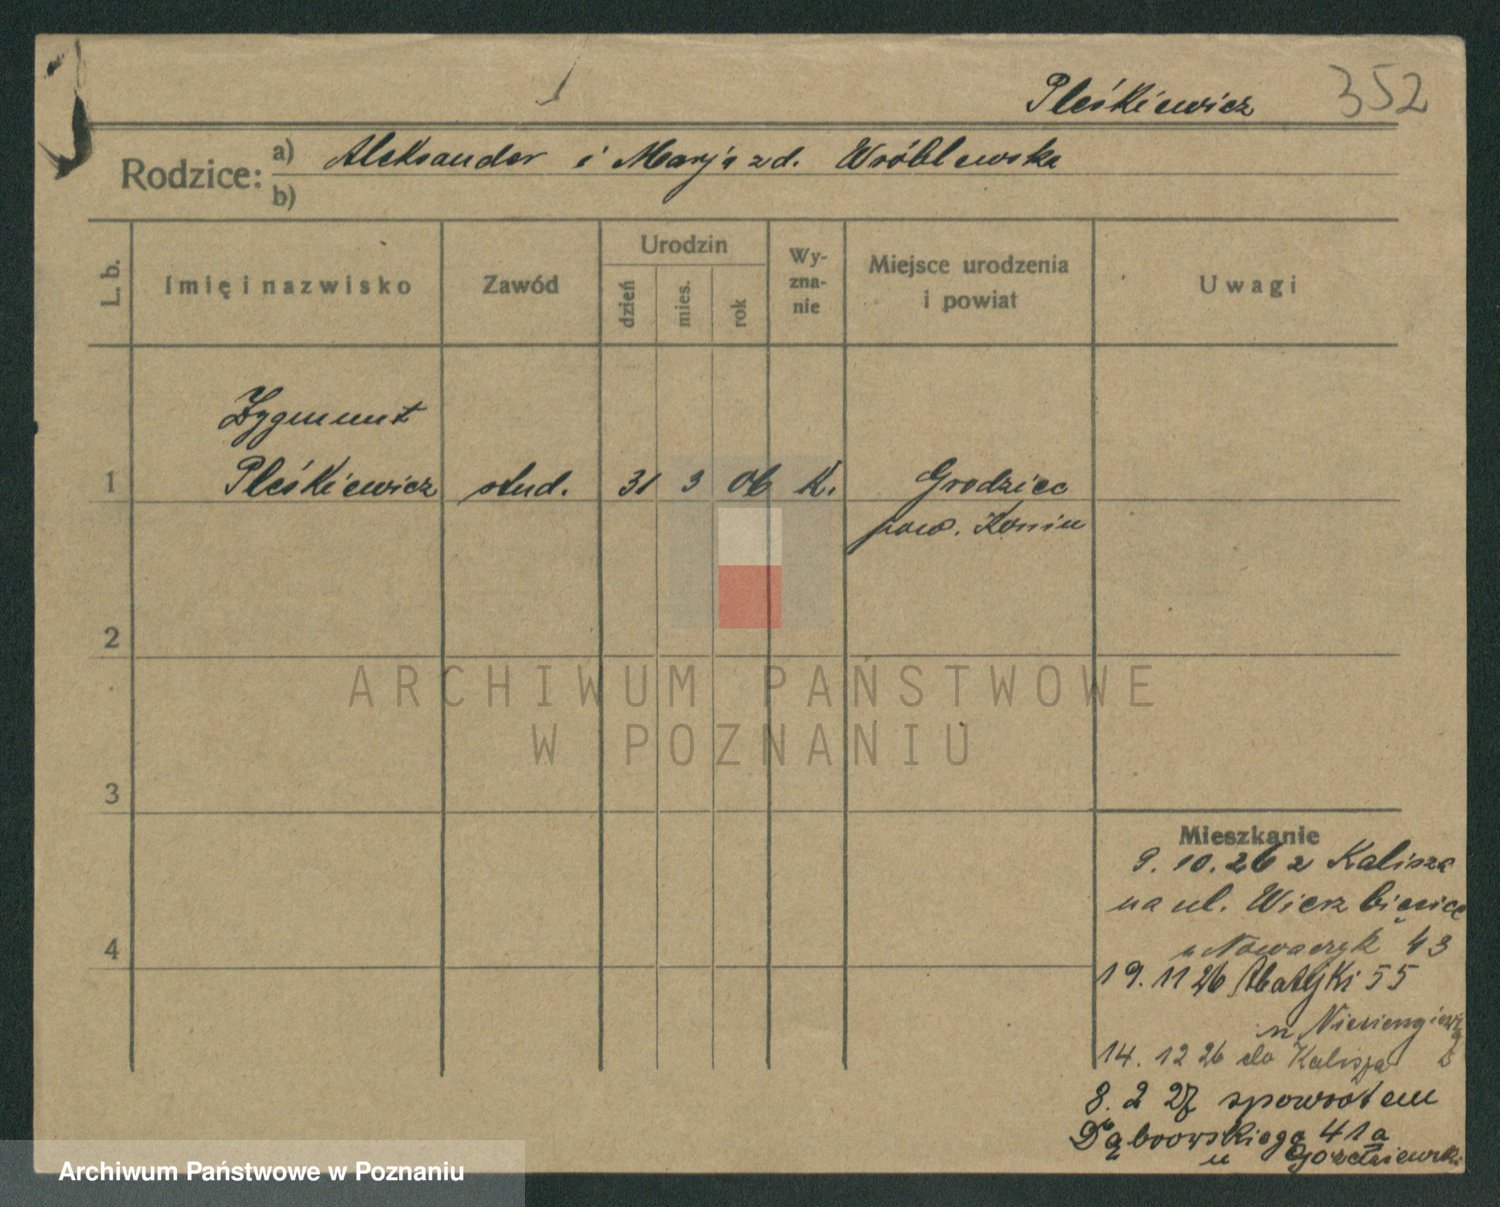 Pleśkiewicz 352
Rodzice: a) Aleksander i Marja zd. Wróblewska
b)
L. b. Imię i nazwisko Zawód Urodzin dzień mies. rok Wyznanie Miejsce urodzenia i powiat Uwagi
Zygmunt
1 Pleśkiewicz stud. 31 3 06 K. Grodziec
pow. Konin
2
ARCHIWUM PAŃSTWOWE
W POZNANIU
3
Mieszkanie
9. 10. 26 z Kalisza
na ul. Wierzbięcice
u Nowaczyk 43
4
19. 11 26 55
u
14. 12 26 do Kalisza
8. 2 27 spowrotem
Dąbrowskiego 41a
u
Archiwum Państwowe w Poznaniu